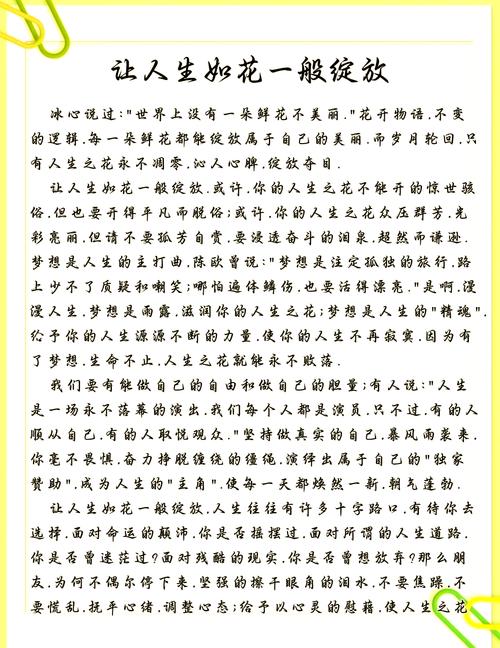 让人生如花一般绽放
冰心说过:"世界上没有一朵鲜花不美丽."花开物语,不变
的逻辑,每一朵鲜花都能绽放属于自己的美丽.而岁月轮回,只
有人生之花永不凋零,沁人心脾,绽放夺目.
让人生如花一般绽放.或许,你的人生之花不能开的惊世骇
俗,但也要开得平凡而脱俗;或许,你的人生之花众压群芳,光
彩亮丽,但请不要孤芳自赏,要浸透奋斗的泪泉,超然而谦逊.
梦想是人生的主打曲,陈欧曾说:"梦想是注定孤独的旅行,路
上少不了质疑和嘲笑;哪怕遍体鳞伤,也要活得漂亮."是啊,漫
漫人生,梦想是雨露,滋润你的人生之花;梦想是人生的"精魂",
给予你的人生源源不断的力量,使你的人生不再寂寞,因为有
了梦想,生命不止,人生之花就能永不败落.
我们要有能做自己的自由和做自己的胆量;有人说:"人生
是一场永不落幕的演出,我们每个人都是演员,只不过,有的人
顺从自己,有的人取悦观众."坚持做真实的自己,暴风雨袭来,
你毫不畏惧,奋力挣脱缠绕的缰绳,演绎出属于自己的"独家
赞助",成为人生的"主角",使每一天都焕然一新,朝气蓬勃.
让人生如花一般绽放,人生往往有许多十字路口,有待你去
选择,面对命运的颠沛,你是否摇摆过,面对所谓的人生道路,
你是否曾迷茫过?面对残酷的现实,你是否曾想放弃?那么朋
友,为何不偶尔停下来,坚强的擦干眼角的泪水,不要焦躁,不
要慌乱,抚平心绪,调整心态;给予以心灵的慰藉,使人生之花